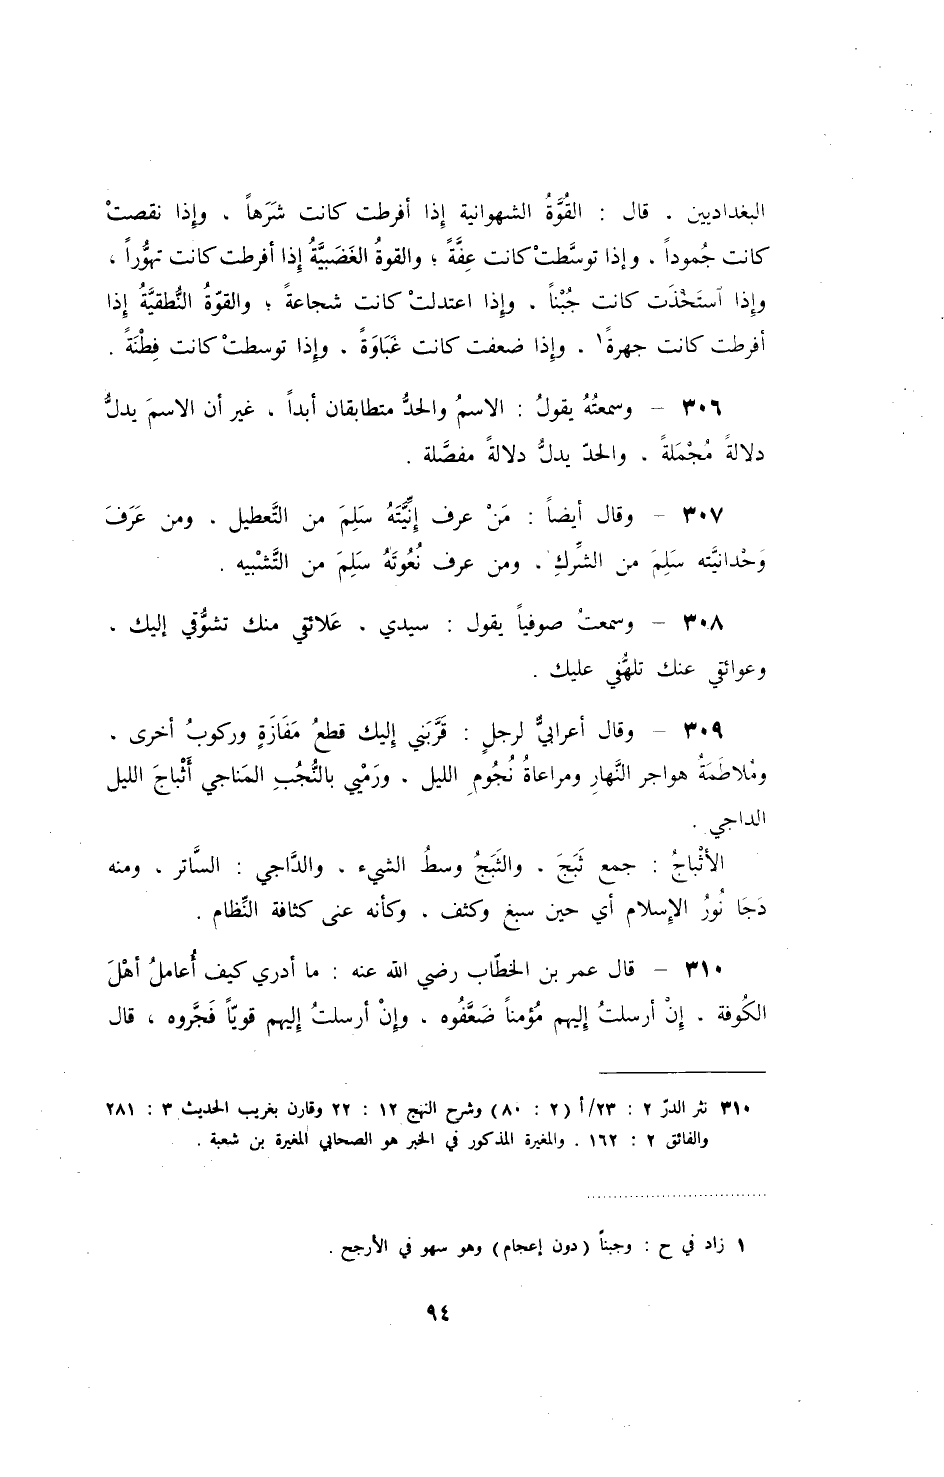 البغداديين . قال : القُوَّةُ الشهوانية إِذا أفرطت كانت شَرَهاً ، وإِذا نقصتْ
كانت جُموداً ، وإِذا توسَّطتْ كانت عِفَّةً ؛ والقوةُ الغَضَبيَّةُ إِذا أفرطت كانت تهوُّراً ،
وإِذا آستَخْذَت كانت جُبْناً ، وإِذا اعتدلتْ كانت شجاعةً ؛ والقوّةُ النُّطقيَّةُ إِذا
أفرطت كانت جهرةً١ ، وإِذا ضعفت كانت غَبَاوَةً ، وإِذا توسطتْ كانت فِطْنَةً .
٣٠٦ – وسمعتُهُ يقولُ : الاسمُ والحدُّ متطابقان أبداً ، غير أن الاسمَ يدلُّ
دلالةً مُجْمَلةً ، والحدّ يدلُّ دلالةً مفصَّلة .
٣٠٧ – وقال أيضاً : مَنْ عرف إِنِّيَّتَهُ سَلِمَ من التَّعطيل ، ومن عَرَفَ
وَحْدانيَّته سَلِمَ من الشِّركِ ، ومن عرف نُعُوتَهُ سَلِمَ من التَّشْبيه .
٣٠٨ – وسمعتُ صوفياً يقول : سيدي ، عَلائقي منك تشوُّقي إليك ،
وعوائقي عنك تلهُّفي عليك .
٣٠٩ – وقال أعرابيٌّ لرجلٍ : قَرَّبَني إِليك قطعُ مَفَازَةٍ وركوبُ أخرى ،
ومُلاطَمَةُ هواجر النَّهارِ ومراعاةُ نُجُومِ الليل ، ورَمْيي بالنُّجُبِ المَناجي أَثْباجَ الليل
الداجي .
الأثْباجُ : جمع ثَبَجَ ، والثَبَجُ وسطُ الشيء ، والدَّاجي : السَّاتر ، ومنه
دَجَا نُورُ الإسلام أي حين سبغ وكثف ، وكأنه عنى كثافة النِّظام .
٣١٠ – قال عمر بن الخطّاب رضي الله عنه : ما أدري كيف أُعاملُ أهْلَ
الكُوفة ، إِنْ أرسلتُ إليهم مُؤمناً ضَعَّفُوه ، وإِنْ أرسلتُ إليهم قويّاً فَجَّروه ، قال
٣١٠ نثر الدرّ ٢ : ٢٣/أ (٢ : ٨٠) وشرح النهج ١٢ : ٢٢ وقارن بغريب الحديث ٣ : ٢٨١
والفائق ٢ : ١٦٢ . والمغيرة المذكور في الخبر هو الصحابي المغيرة بن شعبة .
١ زاد في ح : وجبناً (دون إعجام) وهو سهو في الأرجح .
٩٤